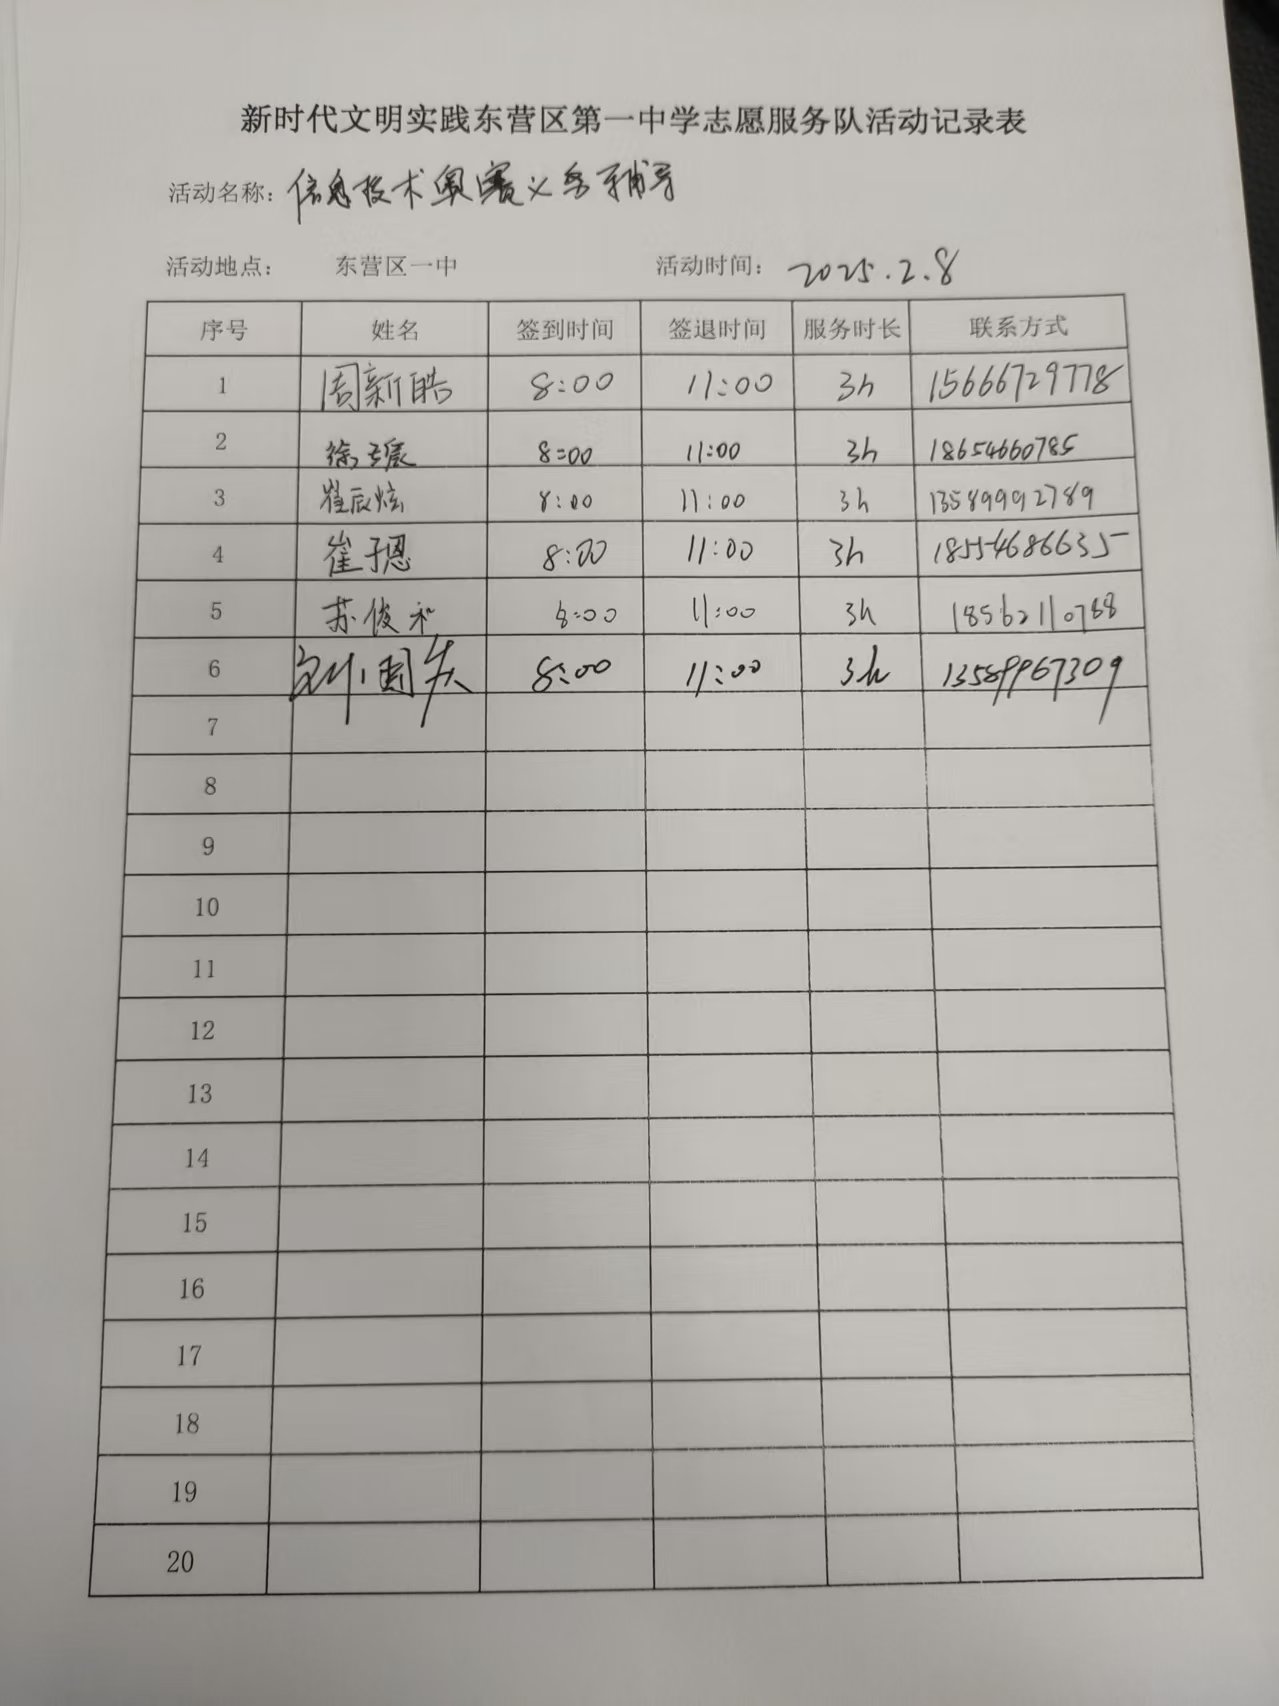 新时代文明实践东营区第一中学志愿服务队活动记录表
活动名称：信息技术奥赛义务辅导
活动地点： 东营区一中 活动时间：2025.2.8
序号 姓名 签到时间 签退时间 服务时长 联系方式
1 周新皓 8:00 11:00 3h 15666729778
2 徐 8:00 11:00 3h 18654660785
3 崔辰炫 8:00 11:00 3h 13589992789
4 崔子恩 8:00 11:00 3h 18554686635
5 苏俊和 8:00 11:00 3h 18562110788
6 8:00 11:00 3h 13589967309
7
8
9
10
11
12
13
14
15
16
17
18
19
20